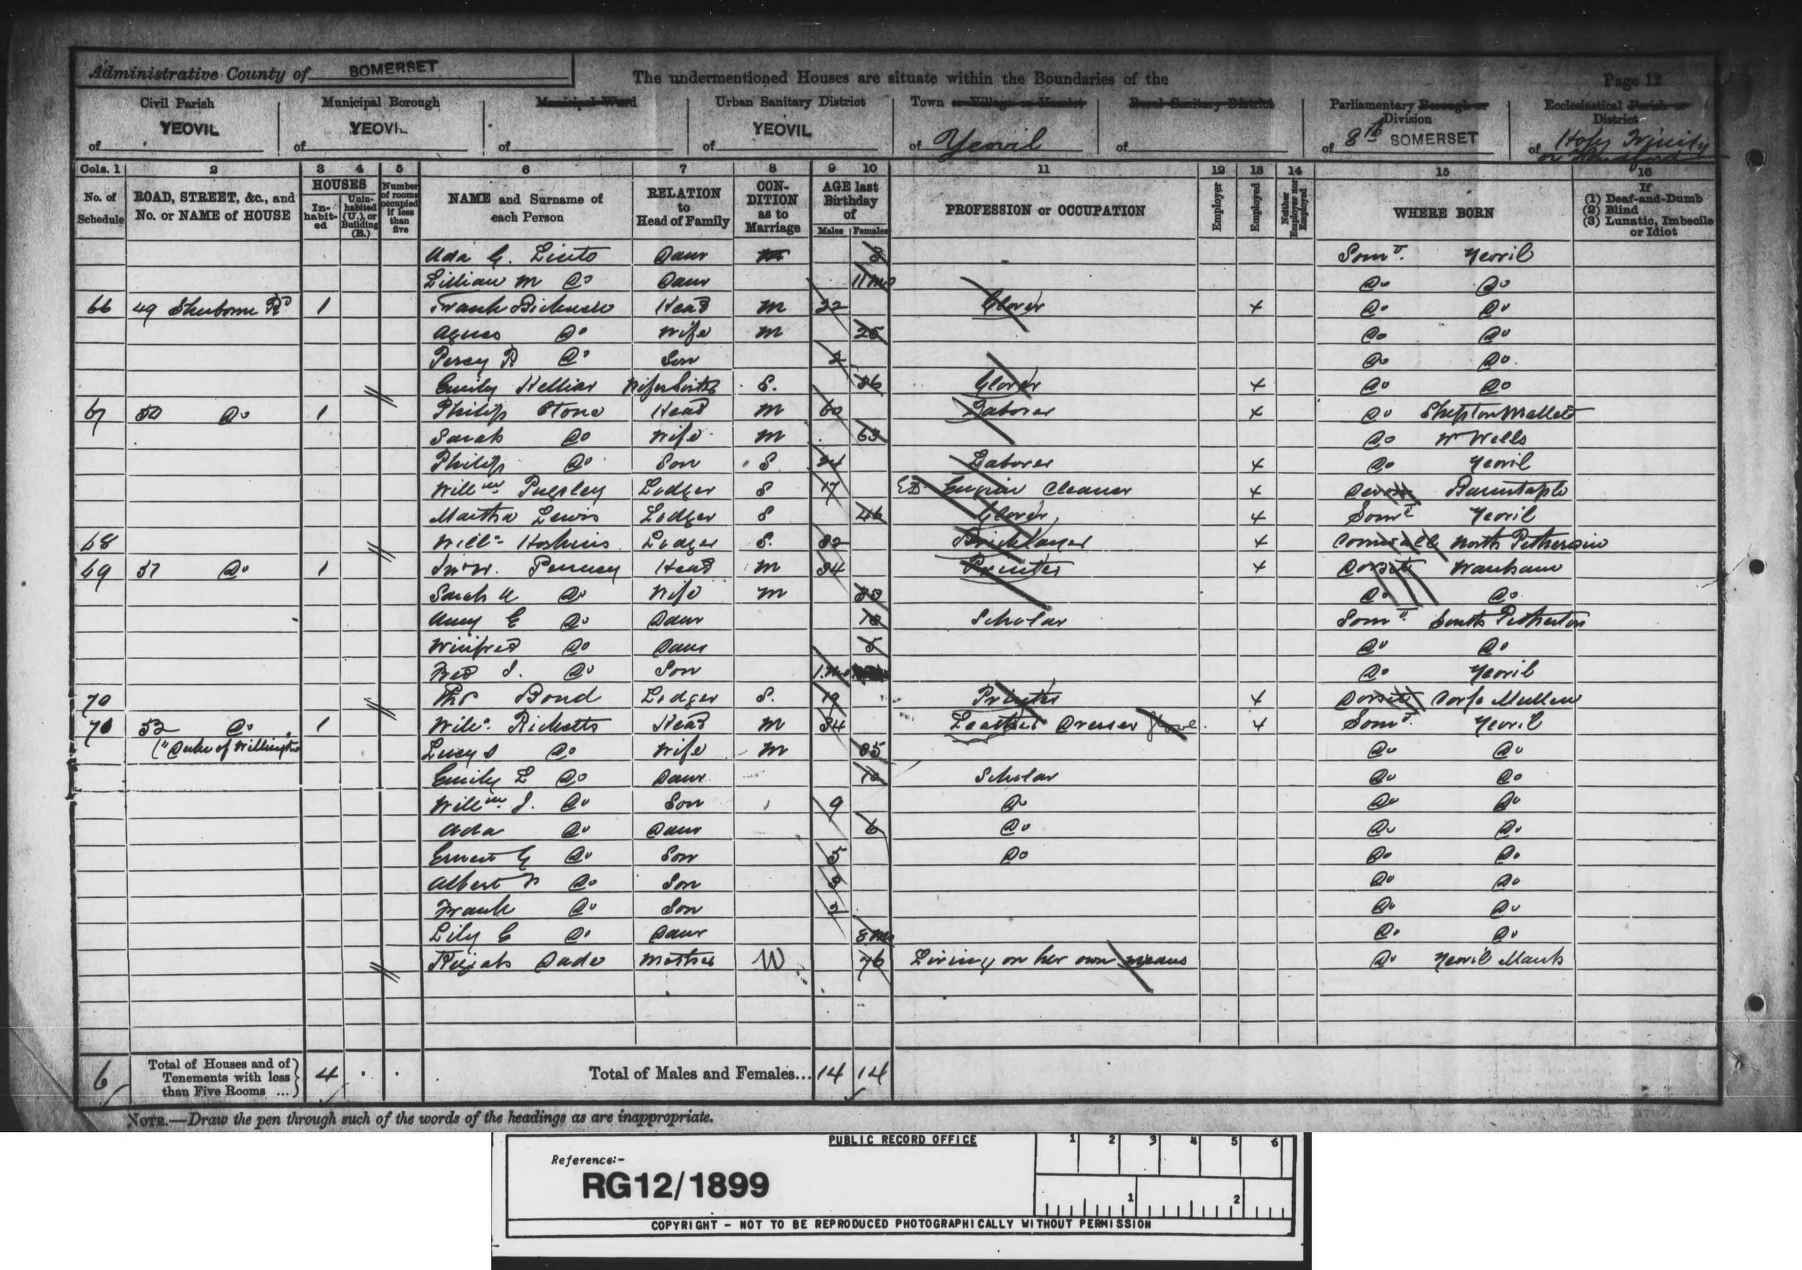 Administrative County of SOMERSET
The undermentioned Houses are situate within the Boundaries of the
Page 12
Civil Parish of YEOVIL
Municipal Borough of YEOVIL
Municipal Ward of
Urban Sanitary District of YEOVIL
Town or Village or Hamlet of Yeovil
Rural Sanitary District of
Parliamentary Borough or Division of 8th SOMERSET
Ecclesiastical Parish or District of Holy Trinity
Cols. 1 2 3 4 5 6 7 8 9 10 11 12 13 14 15 16
No. of Schedule
ROAD, STREET, &c., and No. or NAME of HOUSE
HOUSES
Inhabited
Uninhabited (U.), or Building (B.)
Number of rooms occupied if less than five
NAME and Surname of each Person
RELATION to Head of Family
CONDITION as to Marriage
AGE last Birthday of
Males Females
PROFESSION or OCCUPATION
Employer
Employed
Neither Employer nor Employed
WHERE BORN
If (1) Deaf-and-Dumb (2) Blind (3) Lunatic, Imbecile or Idiot
Ada G. Daur Somt. Yeovil
Lillian M Do Daur 11mo Do Do
66 49 Sherborne Rd 1 Frank Bicknell Head M 22 Glover x Do Do
Agnes Do Wife M 25 Do Do
Percy R Do Son 2 Do Do
Emily Helliar S. Glover x Do Do
67 50 Do 1 Philip Stone Head M 60 Laborer x Do Shepton Mallet
Sarah Do Wife M 63 Do Nr Wells
Philip Do Son S 24 Laborer x Do Yeovil
Willm Pugsley Lodger S 17 Engine Cleaner x Devon Barnstaple
Martha Lewis Lodger S 46 Glover x Somt Yeovil
68 Willm Hoskins Lodger S. 32 Bricklayer x Cornwall North Petherwin
69 51 Do 1 Penney Head M 34 Printer x Dorset Wareham
Sarah A Do Wife M Do Do
Amy E Do Daur 10 Scholar Somt South Petherton
Winifred Do Daur 5 Do Do
Fred J. Do Son 1mo Do Yeovil
70 Thos Bond Lodger S. 19 Printer x Dorset Corfe Mullen
70 52 Do 1 Willm Ricketts Head M 34 Leather Dresser Glove x Somt. Yeovil
("Duke of Wellington
Lucy S Do Wife M 35 Do Do
Emily L Do Daur 10 Scholar Do Do
Willm J. Do Son 9 Do Do Do
Ada Do Daur 6 Do Do Do
Ernest G Do Son 5 Do Do Do
Albert Do Son 3 Do Do
Frank Do Son 2 Do Do
Lily E Do Daur 8mo Do Do
Dade Mother W 76 Living on her own means Do Yeovil Marsh
6 Total of Houses and of Tenements with less than Five Rooms ...} 4
Total of Males and Females... 14 14
NOTE.—Draw the pen through such of the words of the headings as are inappropriate.
PUBLIC RECORD OFFICE
1 2 3 4 5 6
Reference:-
RG12/1899
1 2
COPYRIGHT - NOT TO BE REPRODUCED PHOTOGRAPHICALLY WITHOUT PERMISSION